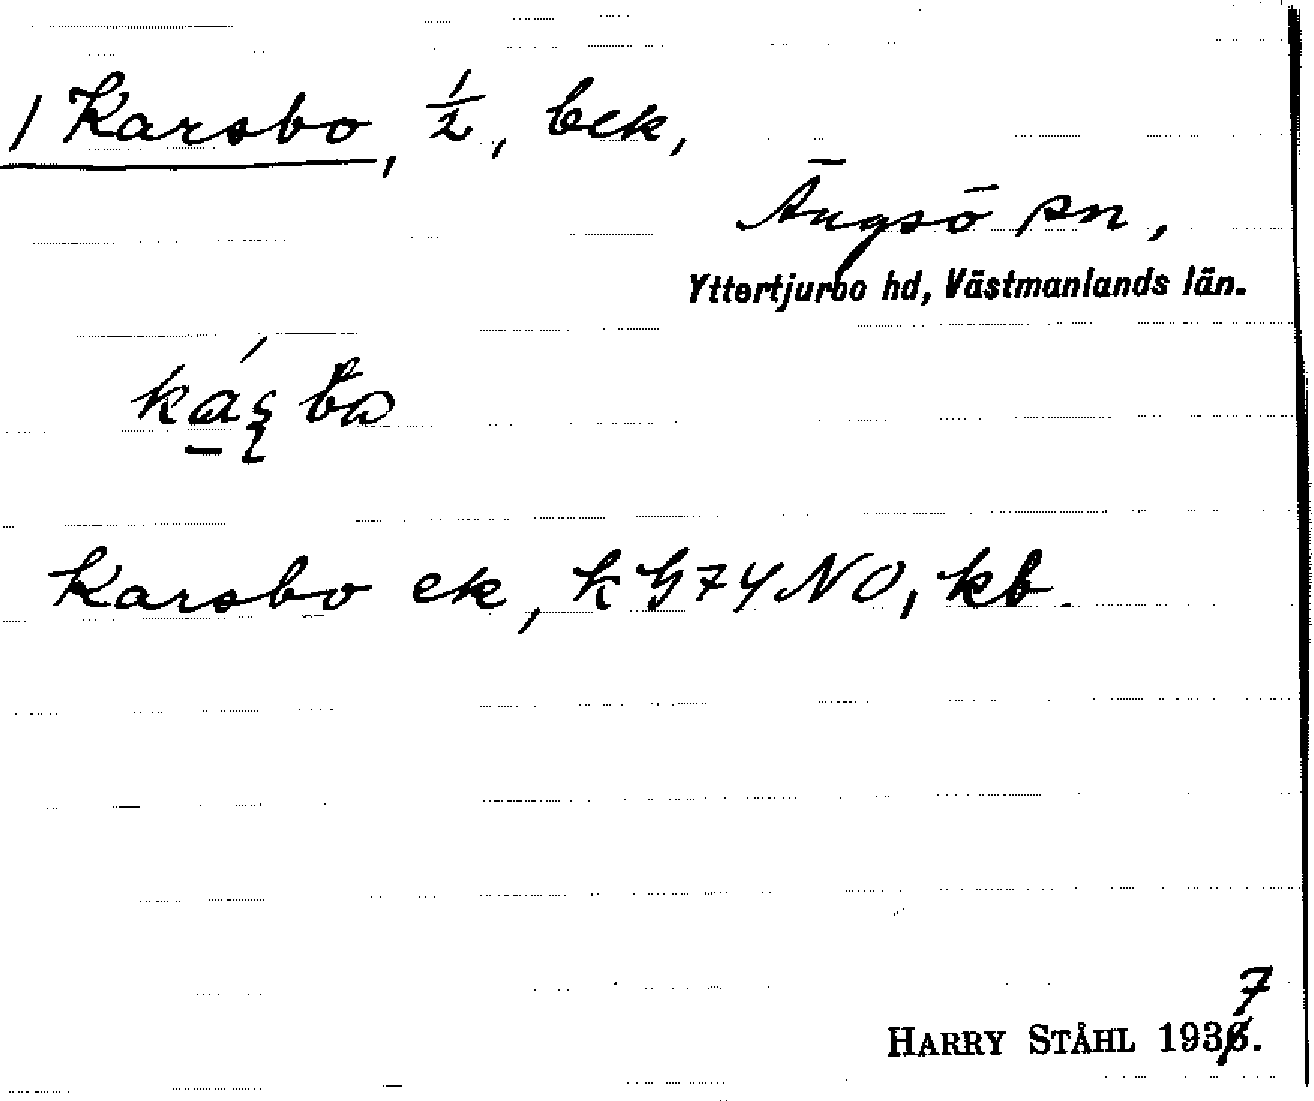 1 Karsbo, ½, bek,
Ängsö sn,
Yttertjurbo hd, Västmanlands län.
Karsbo ek, k G74NO, kb.
7
HARRY STÅHL 1936.